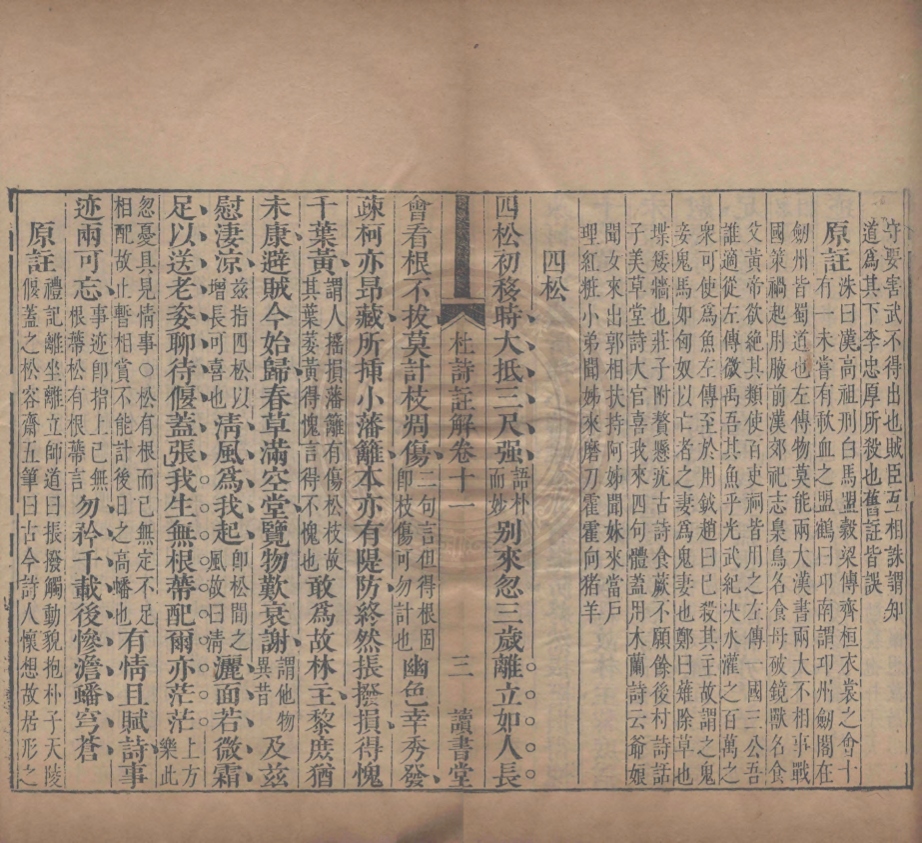 守要害武不得出也賊臣互相誅謂知
道爲其下李忠厚所殺也舊註皆誤
原註洙曰漢高祖刑白馬盟穀梁傳齊桓衣裳之會十
有一未嘗有歃血之盟鶴曰卭南謂卭州劒閣在
劒州皆蜀道也左傳物莫能兩大漢書兩大不相事戰
國策禍起肘腋前漢郊祀志梟鳥名食母破鏡獸名食
父黃帝欲絶其類使百吏祠皆用之左傳一國三公吾
誰適從左傳微禹吾其魚乎光武紀決水灌之百萬之
衆可使爲魚左傳至於用鉞趙曰巳殺其主故謂之鬼
妾鬼馬如匈奴以亡者之妻爲鬼妻也鄭曰薙除草也
堞矮牆也莊子附贅懸疣古詩食蕨不願餘後村詩話
子美草堂詩大官喜我來四句體蓋用木蘭詩云爺娘
聞女來出郭相扶持阿姊聞妹來當戸
理紅粧小弟聞姊來磨刀霍霍向猪羊
四松
四松初移時大抵三尺强語朴而妙別來忽三歲離立如人長
杜詩註解卷十一 三 讀書堂
會看根不拔莫計枝凋傷二句言但得根固卽枝傷可勿計也幽色幸秀發
疎柯亦昂藏所揷小藩籬本亦有隄防終然掁撥損得愧
千葉黃謂人搖損藩籬有傷松枝故其葉萎黃得愧言得不愧也敢爲故林主黎庶猶
未康避賊今始歸春草滿空堂覽物歎衰謝謂他物異昔及玆
慰淒凉玆指四松以增長可喜也淸風爲我起卽松間之風故曰清灑面若微霜
足以送老姿聊待偃蓋張我生無根蔕配爾亦茫茫上方樂此
忽憂具見情事○松有根而己無定不足相配故止暫相賞不能計後日之高蟠也有情且賦詩事
迹兩可忘事迹卽指上己無根蔕松有根蔕言勿矜千載後慘澹蟠穹蒼
原註禮記離坐離立師道曰掁撥觸動貌抱朴子天陵
偃蓋之松容齋五筆曰古今詩人懷想故居形之